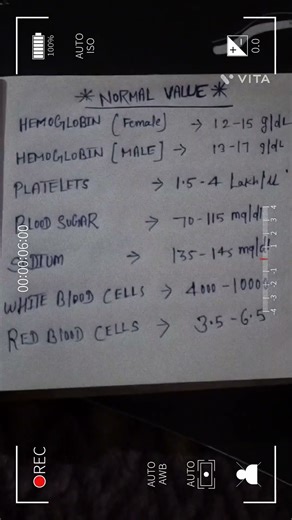 100%
AUTO
ISO
0.0
VITA
* NORMAL VALUE *
HEMOGLOBIN [Female] → 12-15 g/dL
HEMOGLOBIN [MALE] → 13-17 g/dL
PLATELETS → 1.5-4 Lakh/
BLOOD SUGAR → 70-115 mg/dl
SODIUM → 135-145 mg/dl
WHITE BLOOD CELLS → 4000-1000
RED BLOOD CELLS → 3.5-6.5
00:00:06:00
4 3 2 1 0 -1 -2 -3 -4
REC
AUTO
AWB
AUTO